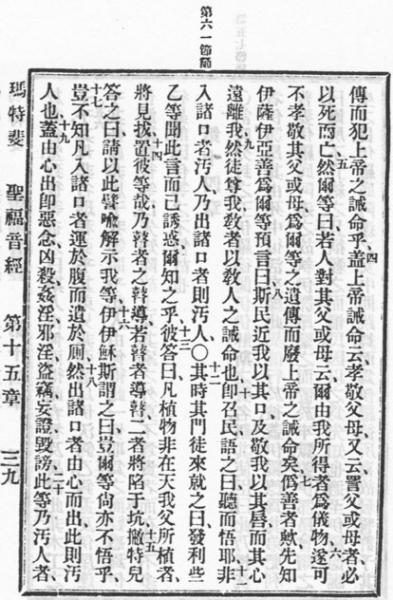 第六一節
傳而犯上帝之誡命乎、四蓋上帝誡命云、孝敬父母、又云、詈父或母者、必
以死而亡、五然爾等曰、若人對其父或母云、爾由我所得者爲儀物、六遂可
不孝敬其父或母、爲爾等之遺傳而廢上帝之誡命矣、七僞善者歟、先知
伊薩伊亞善爲爾等預言曰、八斯民近我以其口、及敬我以其唇、而其心
遠離我、九然徒尊我、敎者以敎人之誡命也、十卽召民語之曰、聽而悟耶、十一非
入諸口者汚人、乃出諸口者則汚人、〇十二其時其門徒來就之曰、發利些
乙等聞此言而已誘惑、爾知之乎、十三彼答曰、凡植物非在天我父所植者、
將見拔、十四置彼等哉、乃瞽者之瞽導、若瞽者導瞽、二者將陷于坑、十五撇特兒
答之曰、請以此譬喩解示我等、十六伊伊穌斯謂之曰、豈爾等尙亦不悟乎、
十七豈不知凡入諸口者、運於腹而遺於厠、十八然出諸口者、由心而出、此則汚
人也、十九蓋由心出卽惡念、凶殺、姦淫、邪淫、盜竊、妄證、毀謗、二十此等乃汚人者、
瑪特斐 聖福音經 第十五章 三九